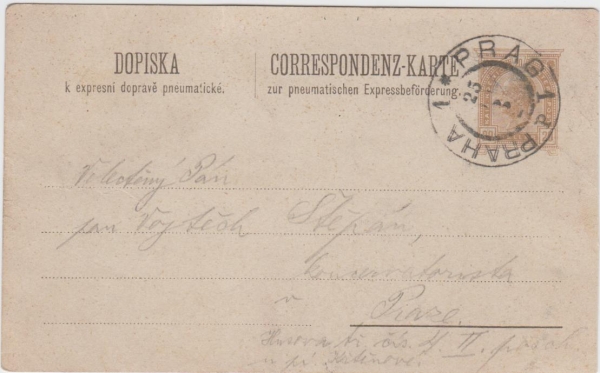 DOPISKA
k expresní dopravě pneumatické.
CORRESPONDENZ-KARTE
zur pneumatischen Expressbeförderung.
PRAG 1 PRAHA 1
23
Velectěný Pán
pan Vojtěch Štěpán,
Conservatorista
v Praze.
čís. 4. II.
u pí